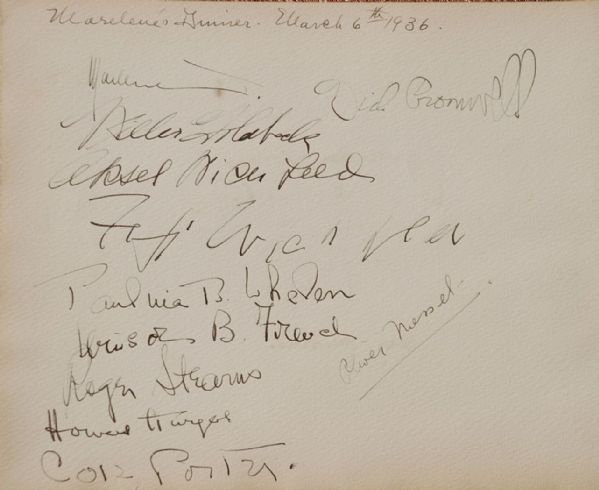 Marlene's Dinner. March 6th 1936.
Marlene
Dick Cromwell
Aksel Wichfeld
Fifi Wichfeld
B. Whelen
Winsor B. French
Oliver Messel.
Roger Stearns
Howard Sturges
Cole Porter.